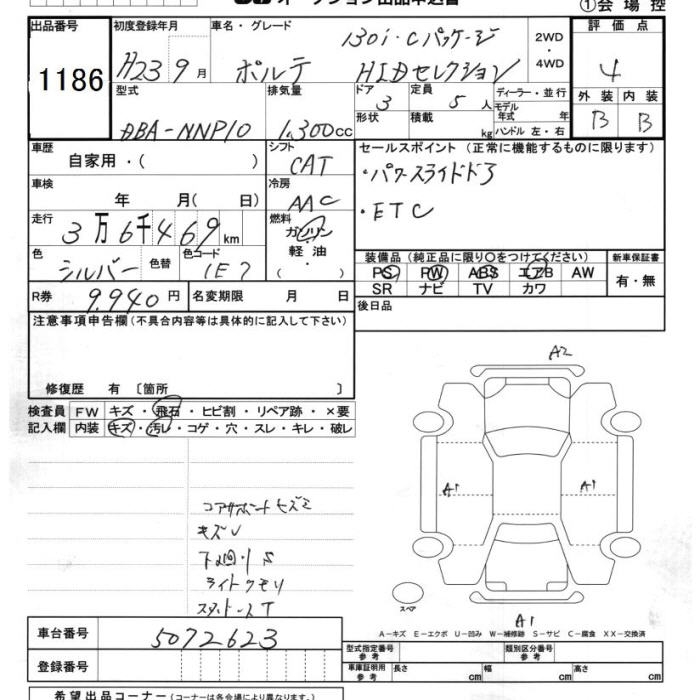 オークション出品申込書
①会場控
出品番号
1186
初度登録年月
H23 9月
車名・グレード
ポルテ
130i・Cパッケージ
HIDセレクション
2WD
・4WD
評価点
4
外装 内装
B B
型式
DBA-NNP10
排気量
1,300cc
ドア
3
定員
5人
形状
積載
kg
ディーラー・並行
モデル
年式 年
ハンドル 左・右
車歴
自家用・( )
シフト
CAT
セールスポイント(正常に機能するものに限ります)
・パワースライドドア
・ETC
車検
年 月( 日)
冷房
AAC
走行
3万6千469km
燃料
ガソリン
軽油
( )
色
シルバー
色替
色コード
1E7
装備品(純正品に限り○をつけてください)
PS PW ABS エアB AW
SR ナビ TV カワ
新車保証書
有・無
R券
9,940円
名変期限 月 日
後日品
注意事項申告欄(不具合内容等は具体的に記入して下さい)
修復歴 有〔箇所 〕
検査員
記入欄
FW キズ・飛石・ヒビ割・リペア跡・×要
内装 キズ・汚レ・コゲ・穴・スレ・キレ・破レ
コアサポートヒズミ
キズU
下回りS
ライトクモリ
A2
A1
A1
A1
スペア
A-キズ E-エクボ U-凹み W-補修跡 S-サビ C-腐食 XX-交換済
車台番号
5072623
登録番号
型式指定番号
参考
類別区分番号
参考
車庫証明用
参考
長さ cm
幅 cm
高さ cm
希望出品コーナー(コーナーは各会場により異なります。)